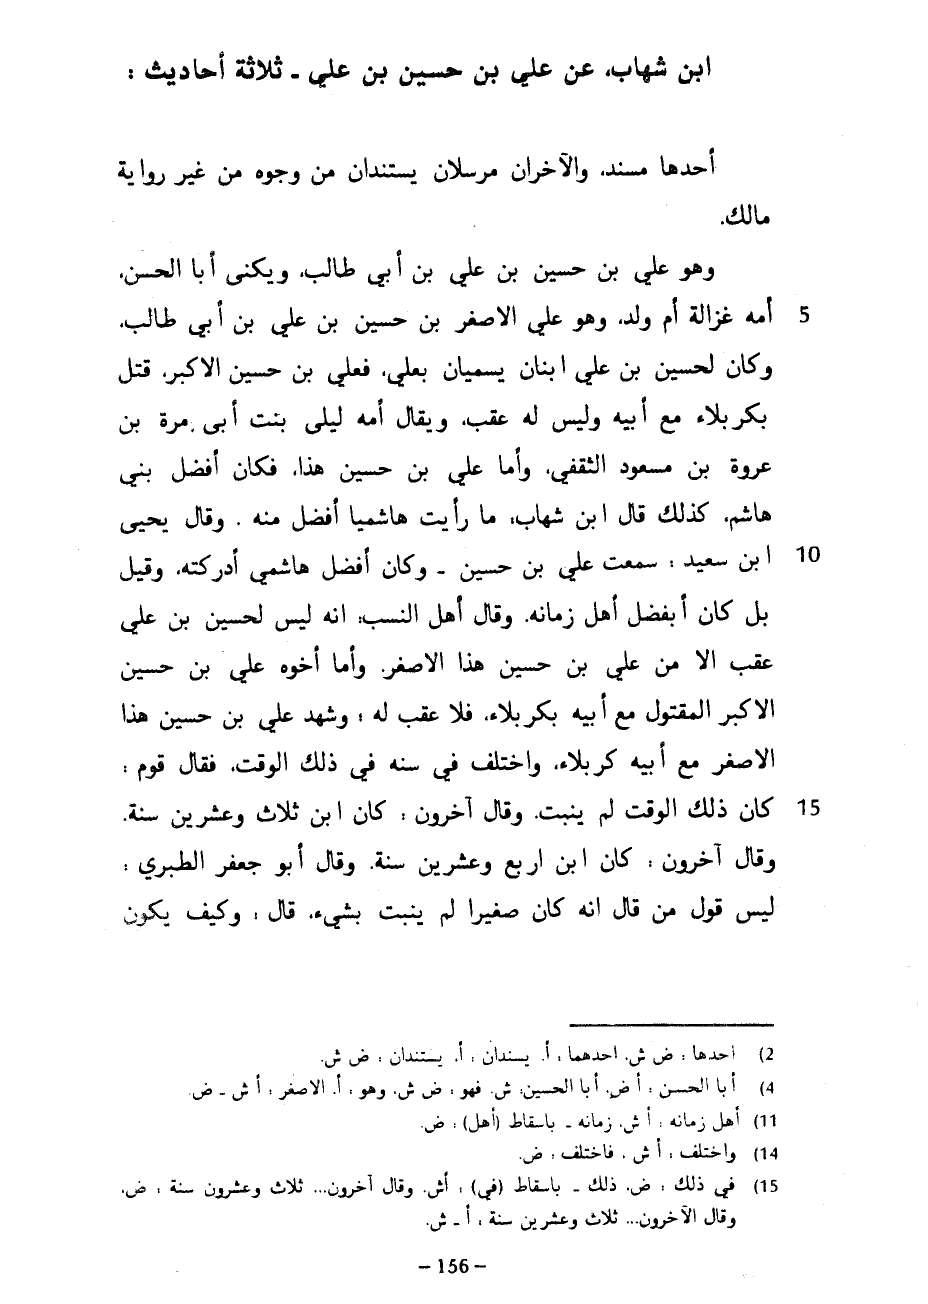 ابن شهاب، عن علي بن حسين بن علي ـ ثلاثة أحاديث :
أحدها مسند، والآخران مرسلان يستندان من وجوه من غير رواية
مالك.
وهو علي بن حسين بن علي بن أبي طالب، ويكنى أبا الحسن،
5 أمه غزالة أم ولد، وهو علي الاصغر بن حسين بن علي بن أبي طالب،
وكان لحسين بن علي ابنان يسميان بعلي، فعلي بن حسين الاكبر، قتل
بكربلاء مع أبيه وليس له عقب، ويقال أمه ليلى بنت أبي مرة بن
عروة بن مسعود الثقفي، وأما علي بن حسين هذا، فكان أفضل بني
هاشم، كذلك قال ابن شهاب، ما رأيت هاشميا أفضل منه . وقال يحيى
10 ابن سعيد : سمعت علي بن حسين ـ وكان أفضل هاشمي أدركته، وقيل
بل كان أفضل أهل زمانه. وقال أهل النسب: انه ليس لحسين بن علي
عقب الا من علي بن حسين هذا الاصغر. وأما أخوه علي بن حسين
الاكبر المقتول مع أبيه بكربلاء، فلا عقب له ؛ وشهد علي بن حسين هذا
الاصغر مع أبيه كربلاء، واختلف في سنه في ذلك الوقت، فقال قوم :
15 كان ذلك الوقت لم ينبت. وقال آخرون : كان ابن ثلاث وعشرين سنة.
وقال آخرون : كان ابن اربع وعشرين سنة. وقال أبو جعفر الطبري :
ليس قول من قال انه كان صغيرا لم ينبت بشيء، قال : وكيف يكون
2) احدها : ض ش. احدهما : أ. يسندان : أ. يستندان : ض ش.
4) أبا الحسن : أ ض. أبا الحسين: ش. فهو : ض ش. وهو : أ. الاصغر : أ ش ـ ض.
11) أهل زمانه : أ ش. زمانه ـ باسقاط (أهل) : ض.
14) واختلف : أ ش . فاختلف : ض.
15) في ذلك : ض. ذلك ـ باسقاط (في) : أش. وقال آخرون... ثلاث وعشرون سنة : ض.
وقال الآخرون... ثلاث وعشرين سنة : أ ـ ش.
– 156 –